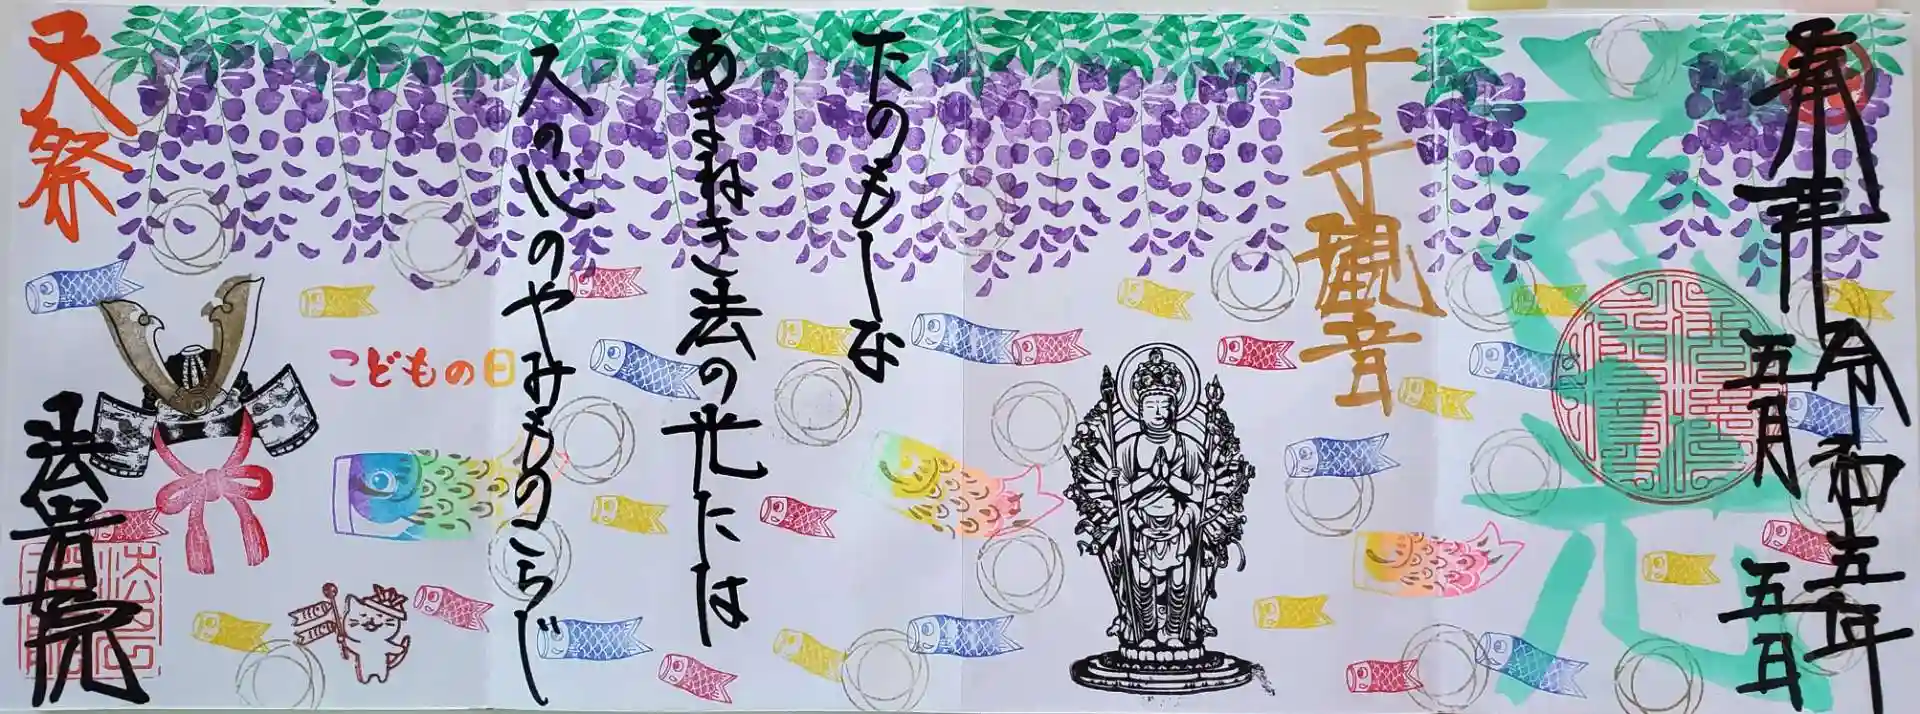 奉拝 令和五年
五月 五日
慈光
千手観音
たのもしな
あまねき法の光には
人の心のやみものこらじ
こどもの日
大祭